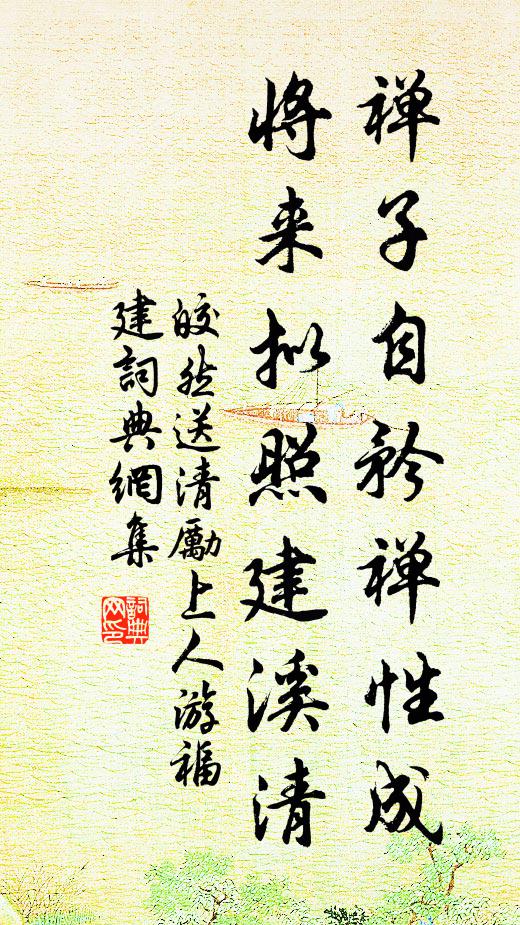 禅子自矜禅性成
将来拟照建溪清
皎然送清励上人游福
建词典網集
詞典
网印